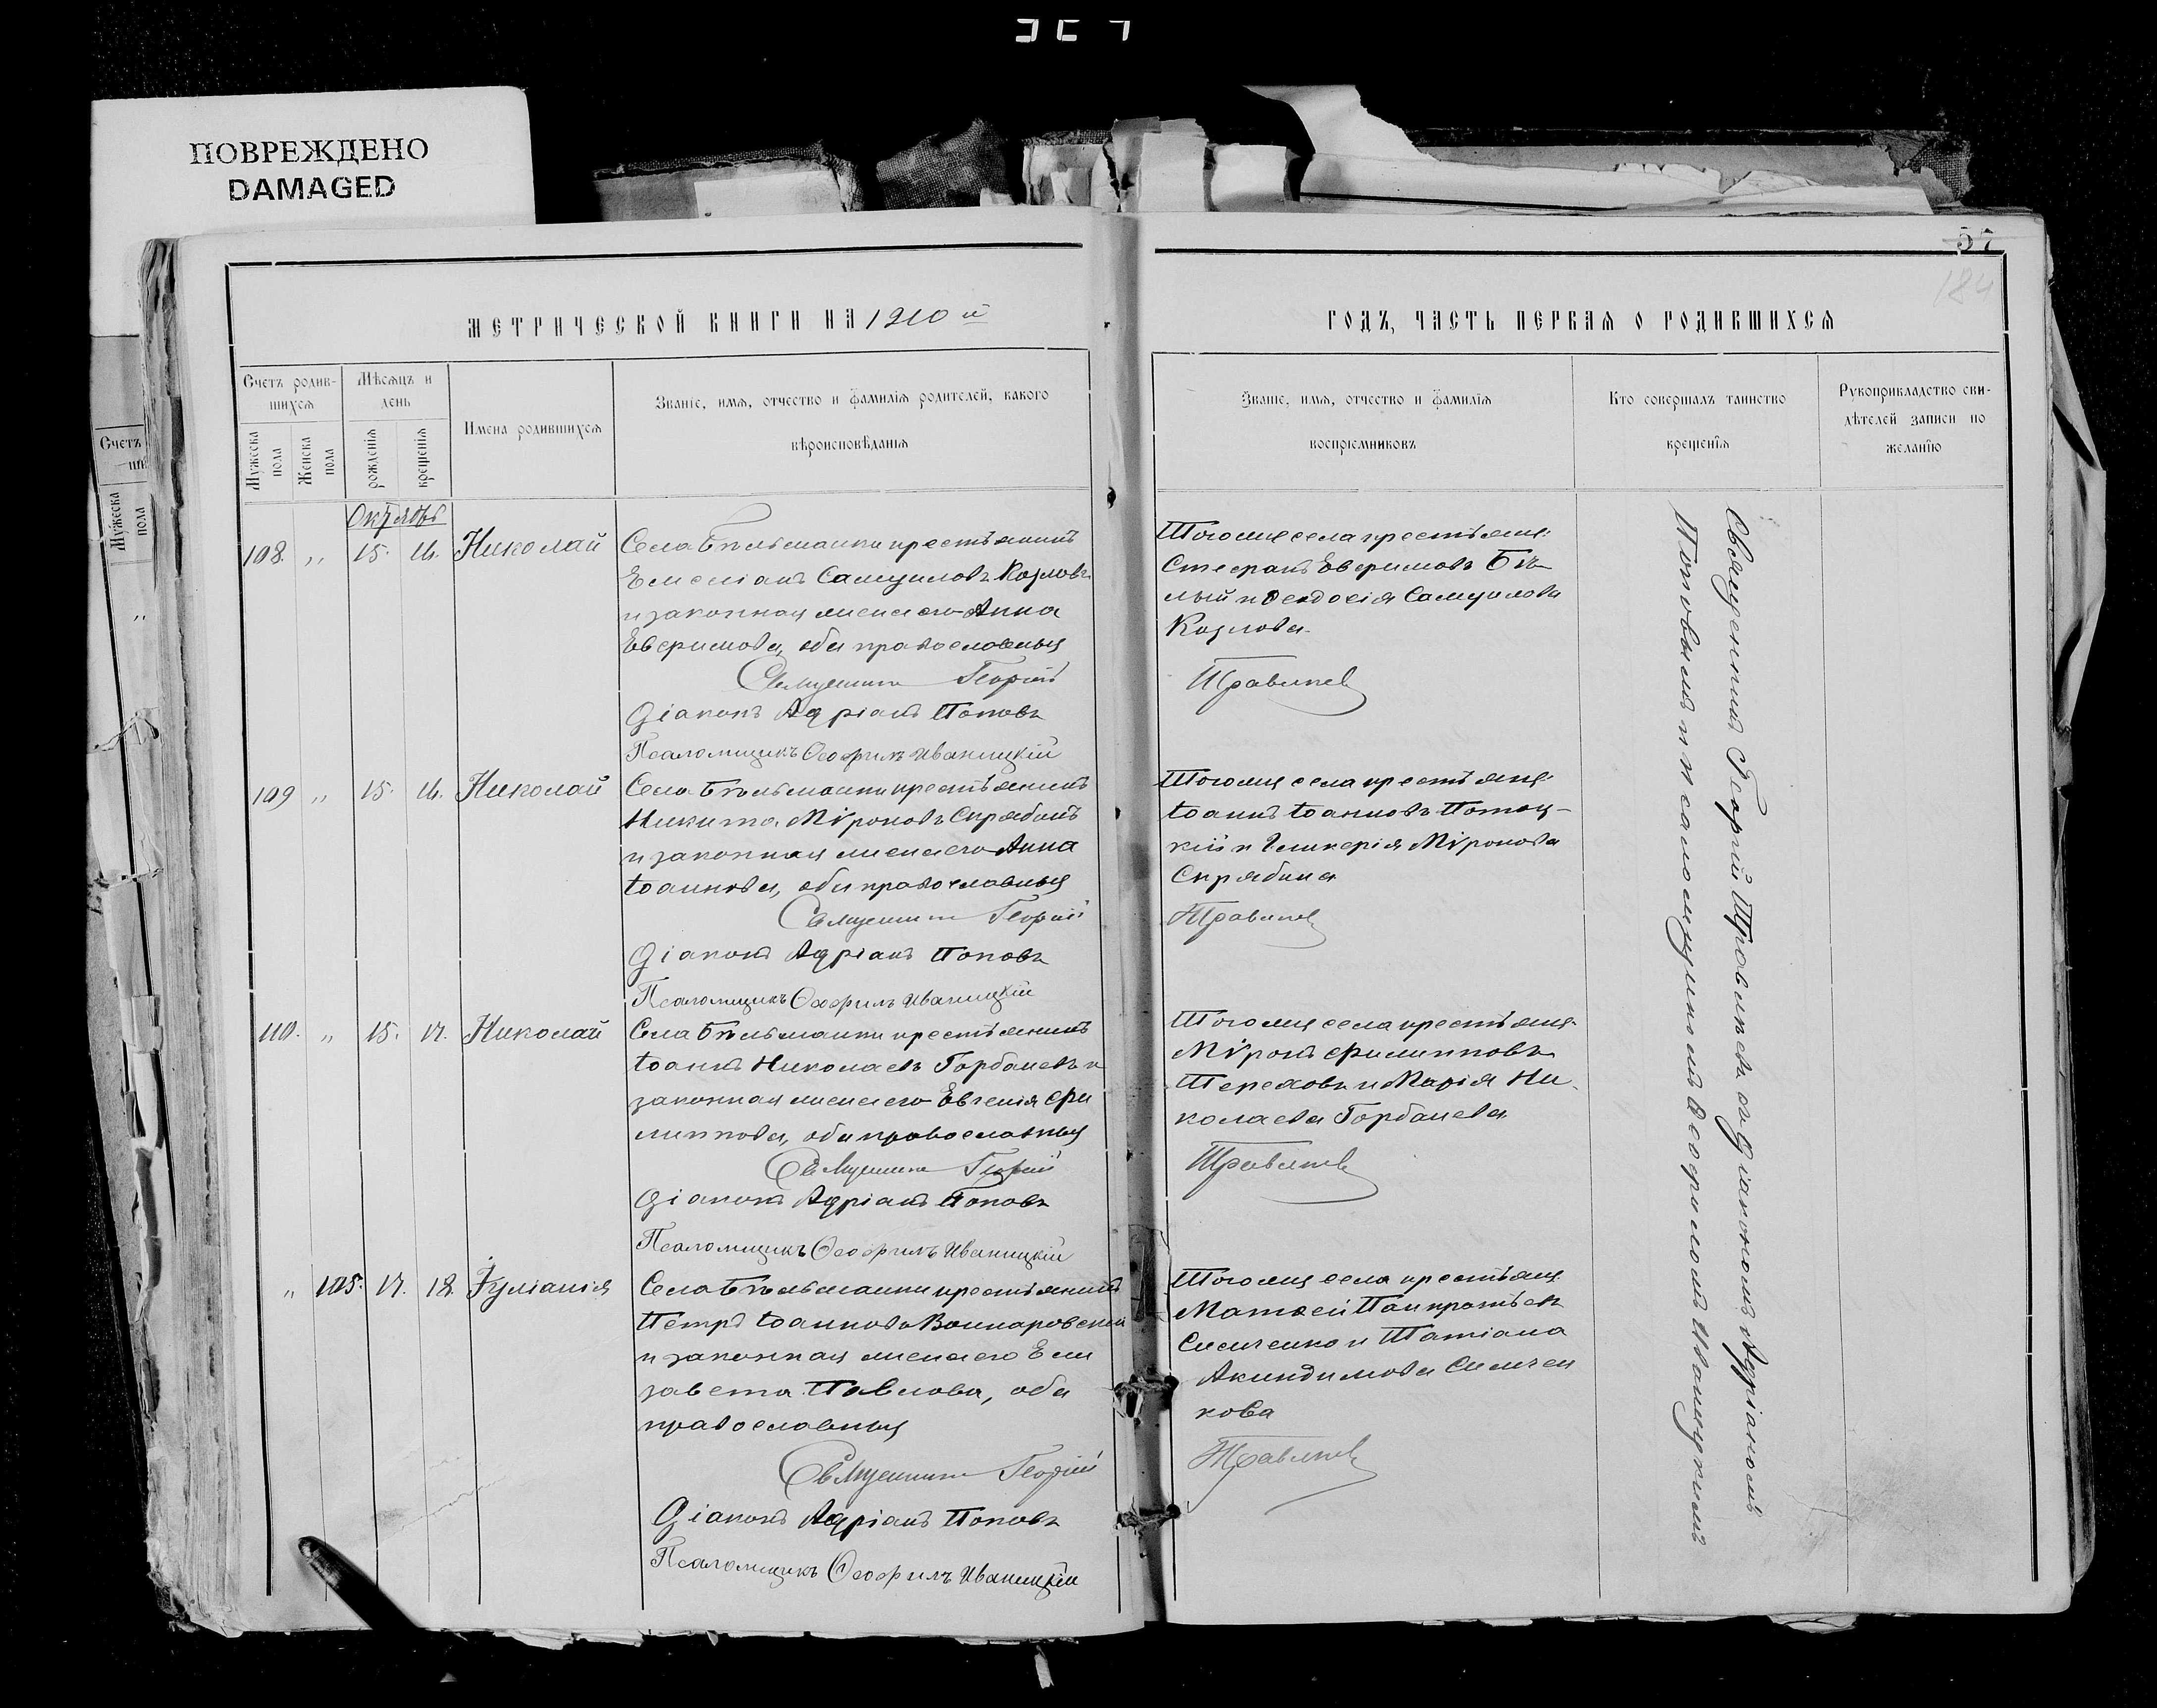 ПОВРЕЖДЕНО
DAMAGED
57
184
МЕТРИЧЕСКОЙ КНИГИ НА 1910 й
ГОДЪ, ЧАСТЬ ПЕРВАЯ О РОДИВШИХСЯ
Счетъ родив-
шихся
Мужеска пола
Женска пола
Мѣсяцъ и
день
рожденія
крещенія
Имена родившихся
Званіе, имя, отчество и фамилія родителей, какого
вѣроисповѣданія
Званіе, имя, отчество и фамилія
воспріемниковъ
Кто совершалъ таинство
крещенія
Рукоприкладство сви-
дѣтелей записи по
желанію
Счетъ
Мужеска
пола
Октябрь
108. „ 15. 16. Николай
Села Бѣльманки крестьянинъ
Емеліанъ Самуиловъ Козловъ
и законная жена его Анна
Евфимова, оба православныя
Священникъ Георгій
Діаконъ Адріанъ Поповъ
Псаломщикъ Ѳеофилъ Иваницкій
Того же села крестьяне:
Стефанъ Евфимовъ Бѣ-
лый и Ѳеодосія Самуилова
Козлова
Травинъ
109 „ 15. 16. Николай
Села Бѣльманки крестьянинъ
Никита Мѵроновъ Скрябинъ
и законная жена его Анна
Іоаннова, оба православныя
Священникъ Георгій
Діаконъ Адріанъ Поповъ
Псаломщикъ Ѳеофилъ Иваницкій
Того же села крестьяне:
Іоаннъ Іоанновъ Потоц-
кій и Гликерія Мѵронова
Скрябина
110. „ 15. 17. Николай
Села Бѣльманки крестьянинъ
Іоаннъ Николаевъ Горбаневъ и
законная жена его Евгенія Фи
липпова, оба православныя
Священникъ Георгій
Діаконъ Адріанъ Поповъ
Псаломщикъ Ѳеофилъ Иваницкій
Того же села крестьяне:
Мѵронъ Филипповъ
Тереховъ и Марія Ни-
колаева Горбанева
„ 105. 17. 18. Іуліанія
Села Бѣльманки крестьянинъ
Петръ Іоанновъ Войнаровскій
и законная жена его Ели
завета Павлова, оба
православныя
Священникъ Георгій
Діаконъ Адріанъ Поповъ
Псаломщикъ Ѳеофилъ Иваницкій
Того же села крестьяне
Матѳей Панкратьевъ
и Татіана
Акиндинова
кова
Священникъ Георгій съ діакономъ Адріаномъ
Поповымъ и псаломщикомъ Ѳеофиломъ Иваницкимъ